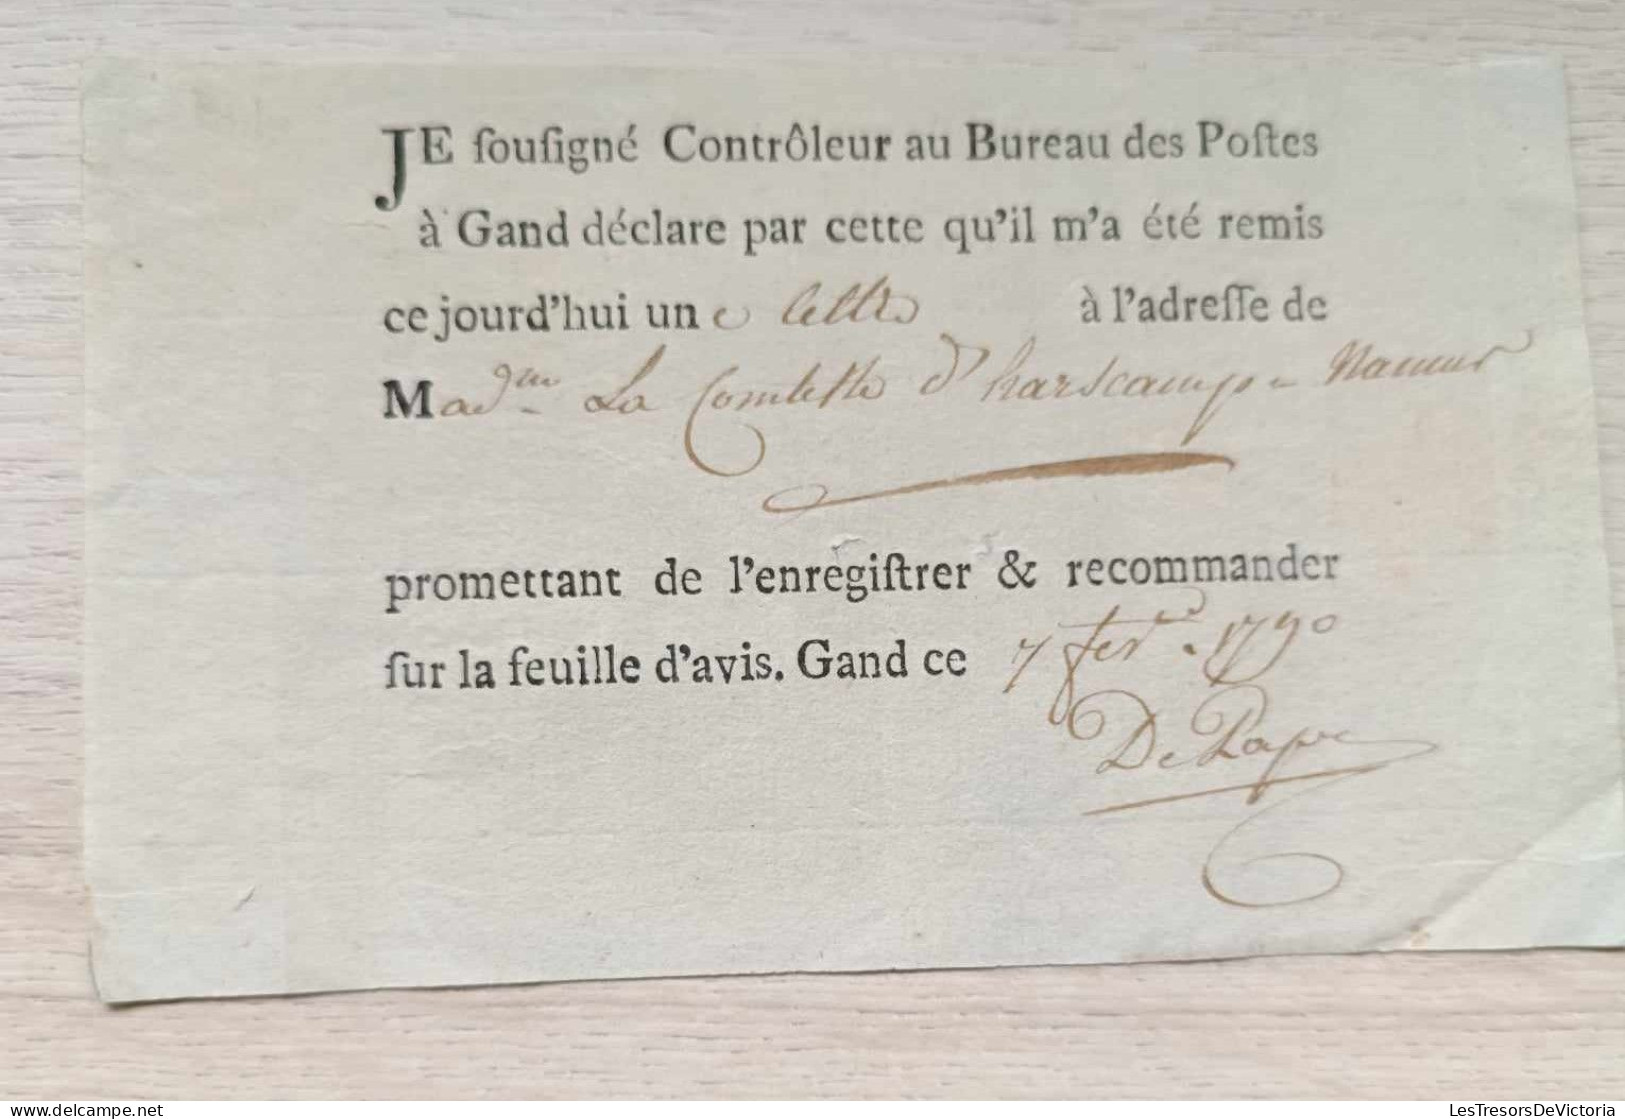 JE ſouſigné Contrôleur au Bureau des Poſtes
à Gand déclare par cette qu'il m'a été remis
ce jourd'hui une lettre à l'adreſſe de
Madme La Comtesse d'harscamp - Namur
promettant de l'enregiſtrer & recommander
ſur la feuille d'avis. Gand ce 7 fevr. 1790
De Pape
www.delcampe.net
LesTresorsDeVictoria